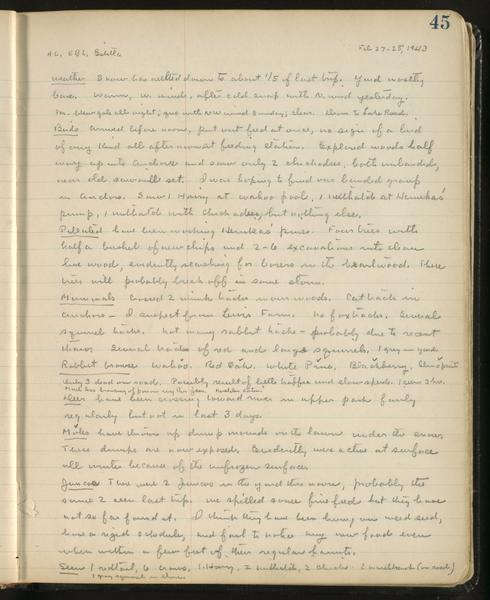 45
Feb 27-28, 1943
Weather Snow has melted down to about 1/5 of last trip. Yard mostly
bare. Warm, w. winds, after cold snap with N wind yesterday.
Birds Arrived before noon, put out feed at once, no sign of a bird
of any kind all afternoon at feeding station. Explored woods half
way up into and saw only 2 chickadees, both unbanded,
near old sawmill set. I was hoping to find our banded group
in Saw 1 Hairy at wahoo pool, 1 nuthatch at
pump, 1 nuthatch with chickadees, but nothing else.
Pileated have been working Four trees with
half a bushel of new chips and 2-6 excavations into clean
live wood, evidently searching for borers in the heartwood. These
trees will probably break off in some storm.
Mammals Crossed 2 mink tracks in our woods. Cat tracks in
- I suspect from Lewis Farm. No fox tracks. Several
squirrel tracks. Not many rabbit tracks - probably due to recent
thaw. Several tracks of red and large squirrels. 1 grey in yard
Rabbit browse Wahoo. Red Oak. White Pine. Blackberry.
Only 3 dead on road. Possibly result of little traffic and slow speeds.
Deer have been crossing toward river in upper park fairly
regularly but not in last 3 days.
Moles have thrown up dump mounds on the lawn under the snow.
These dumps are now exposed. Evidently were active at surface
all winter because of the unfrozen surface.
Juncos There were 2 Juncos in the yard this noon, probably the
same 2 seen last trip. We spilled some fine feed but they have
not so far found it. I think they have been living on weed seed,
have a rigid schedule, and fail to notice any new foods even
when within a few feet of their regular haunts.
Seen 1 redtail, 6 crows, 1 Hairy, 2 nuthatch, 2 chicks